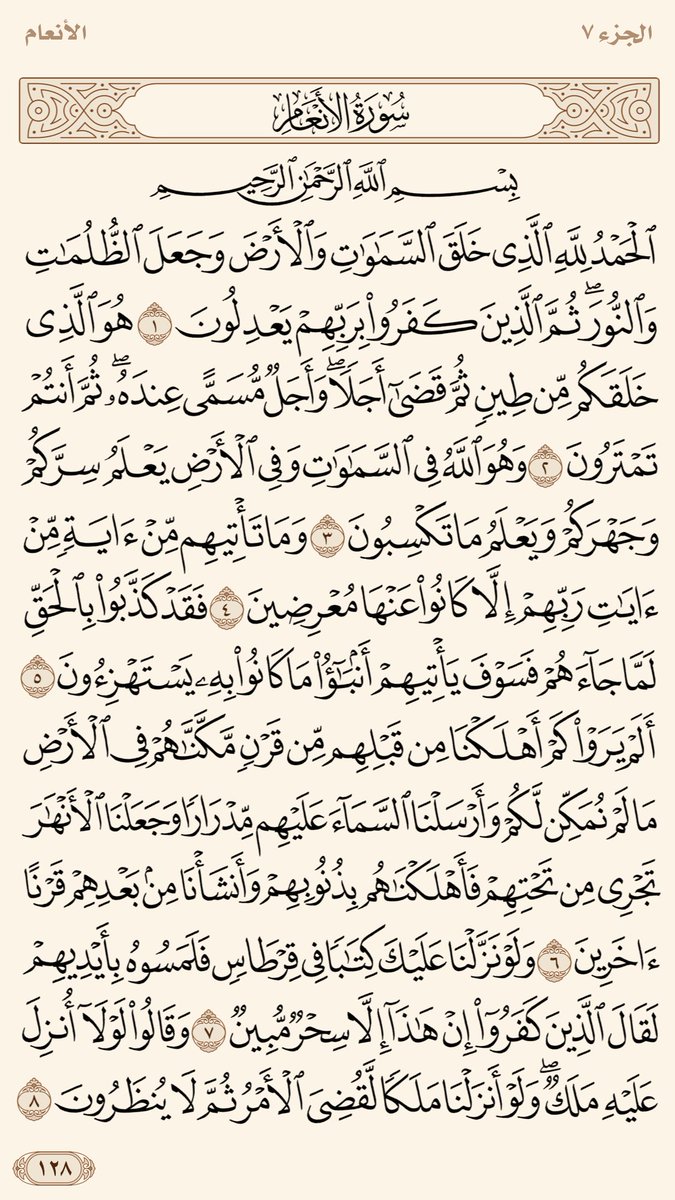 الجزء ٧
الأنعام
سُورَةُ الأَنْعَامِ
بِسْمِ ٱللَّهِ ٱلرَّحْمَٰنِ ٱلرَّحِيمِ
ٱلْحَمْدُ لِلَّهِ ٱلَّذِى خَلَقَ ٱلسَّمَٰوَٰتِ وَٱلْأَرْضَ وَجَعَلَ ٱلظُّلُمَٰتِ
وَٱلنُّورَ ۖ ثُمَّ ٱلَّذِينَ كَفَرُوا۟ بِرَبِّهِمْ يَعْدِلُونَ ١ هُوَ ٱلَّذِى
خَلَقَكُم مِّن طِينٍ ثُمَّ قَضَىٰٓ أَجَلًا ۖ وَأَجَلٌ مُّسَمًّى عِندَهُۥ ۖ ثُمَّ أَنتُمْ
تَمْتَرُونَ ٢ وَهُوَ ٱللَّهُ فِى ٱلسَّمَٰوَٰتِ وَفِى ٱلْأَرْضِ يَعْلَمُ سِرَّكُمْ
وَجَهْرَكُمْ وَيَعْلَمُ مَا تَكْسِبُونَ ٣ وَمَا تَأْتِيهِم مِّنْ ءَايَةٍ مِّنْ
ءَايَٰتِ رَبِّهِمْ إِلَّا كَانُوا۟ عَنْهَا مُعْرِضِينَ ٤ فَقَدْ كَذَّبُوا۟ بِٱلْحَقِّ
لَمَّا جَآءَهُمْ فَسَوْفَ يَأْتِيهِمْ أَنۢبَٰٓؤُا۟ مَا كَانُوا۟ بِهِۦ يَسْتَهْزِءُونَ ٥
أَلَمْ يَرَوْا۟ كَمْ أَهْلَكْنَا مِن قَبْلِهِم مِّن قَرْنٍ مَّكَّنَّٰهُمْ فِى ٱلْأَرْضِ
مَا لَمْ نُمَكِّن لَّكُمْ وَأَرْسَلْنَا ٱلسَّمَآءَ عَلَيْهِم مِّدْرَارًا وَجَعَلْنَا ٱلْأَنْهَٰرَ
تَجْرِى مِن تَحْتِهِمْ فَأَهْلَكْنَٰهُم بِذُنُوبِهِمْ وَأَنشَأْنَا مِنۢ بَعْدِهِمْ قَرْنًا
ءَاخَرِينَ ٦ وَلَوْ نَزَّلْنَا عَلَيْكَ كِتَٰبًا فِى قِرْطَاسٍ فَلَمَسُوهُ بِأَيْدِيهِمْ
لَقَالَ ٱلَّذِينَ كَفَرُوٓا۟ إِنْ هَٰذَآ إِلَّا سِحْرٌ مُّبِينٌ ٧ وَقَالُوا۟ لَوْلَآ أُنزِلَ
عَلَيْهِ مَلَكٌ ۖ وَلَوْ أَنزَلْنَا مَلَكًا لَّقُضِىَ ٱلْأَمْرُ ثُمَّ لَا يُنظَرُونَ ٨
١٢٨